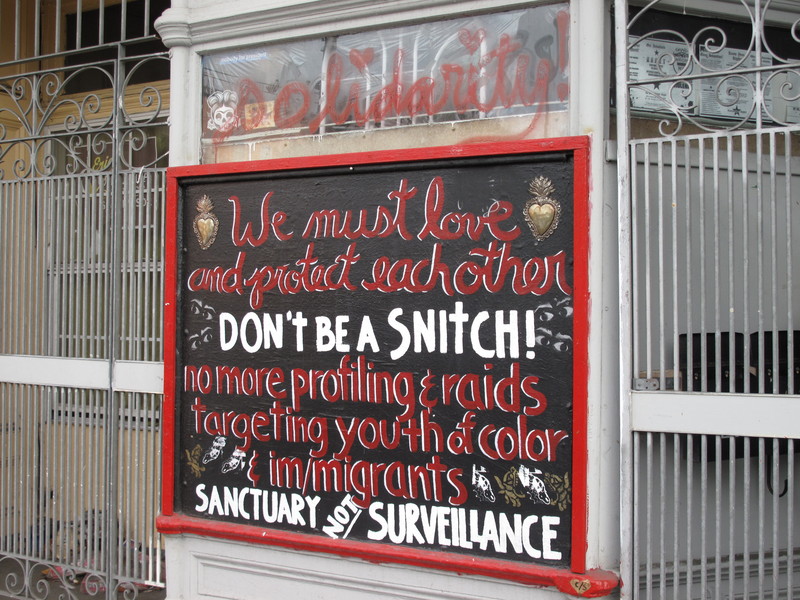 solidarity!
We must love
and protect each other
DON'T BE A SNITCH!
no more profiling & raids
targeting youth of color
& im/migrants
SANCTUARY NOT SURVEILLANCE